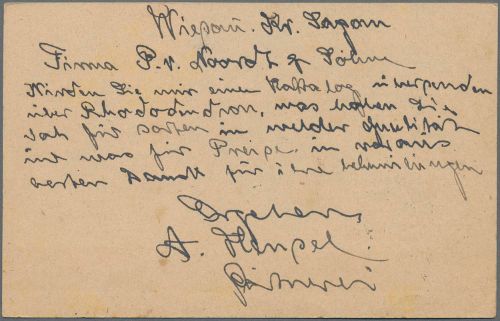 Wiesau. Kr. Sagan
Firma P. v. Noordt & Söhne
Würden Sie mir einen Kattalog übersenden
über Rhododendron, was haben Sie
da für sorten in welcher Qualität
und was für Preise. in voraus
besten Dank für ihre bemühungen
Ergebens
A. Hempel
Gärtnerei